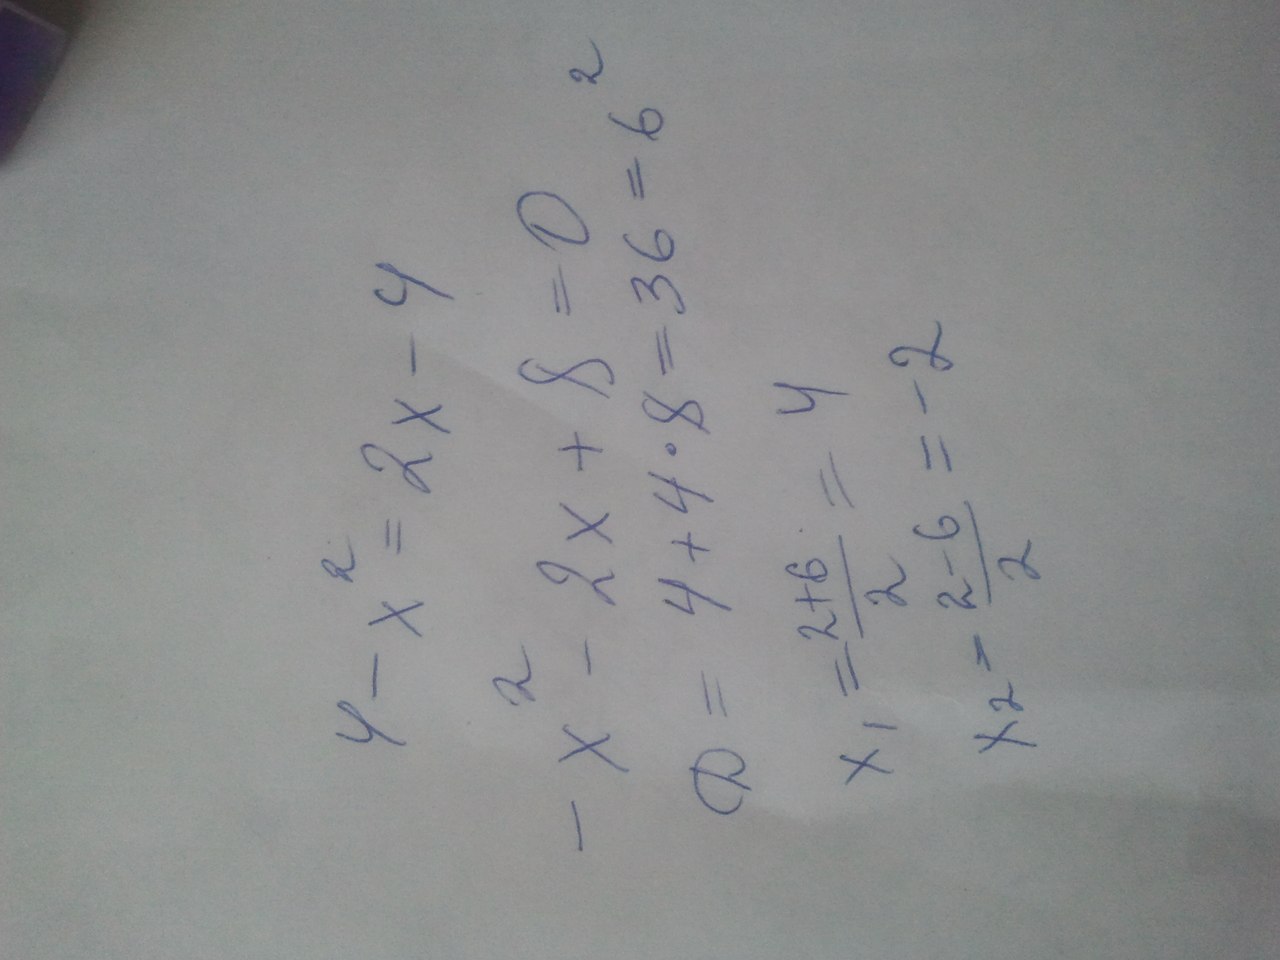 4 - x² = 2x - 4
- x² - 2x + 8 = 0
D = 4 + 4 · 8 = 36 = 6²
x₁ = (2+6)/2 = 4
x₂ = (2-6)/2 = -2